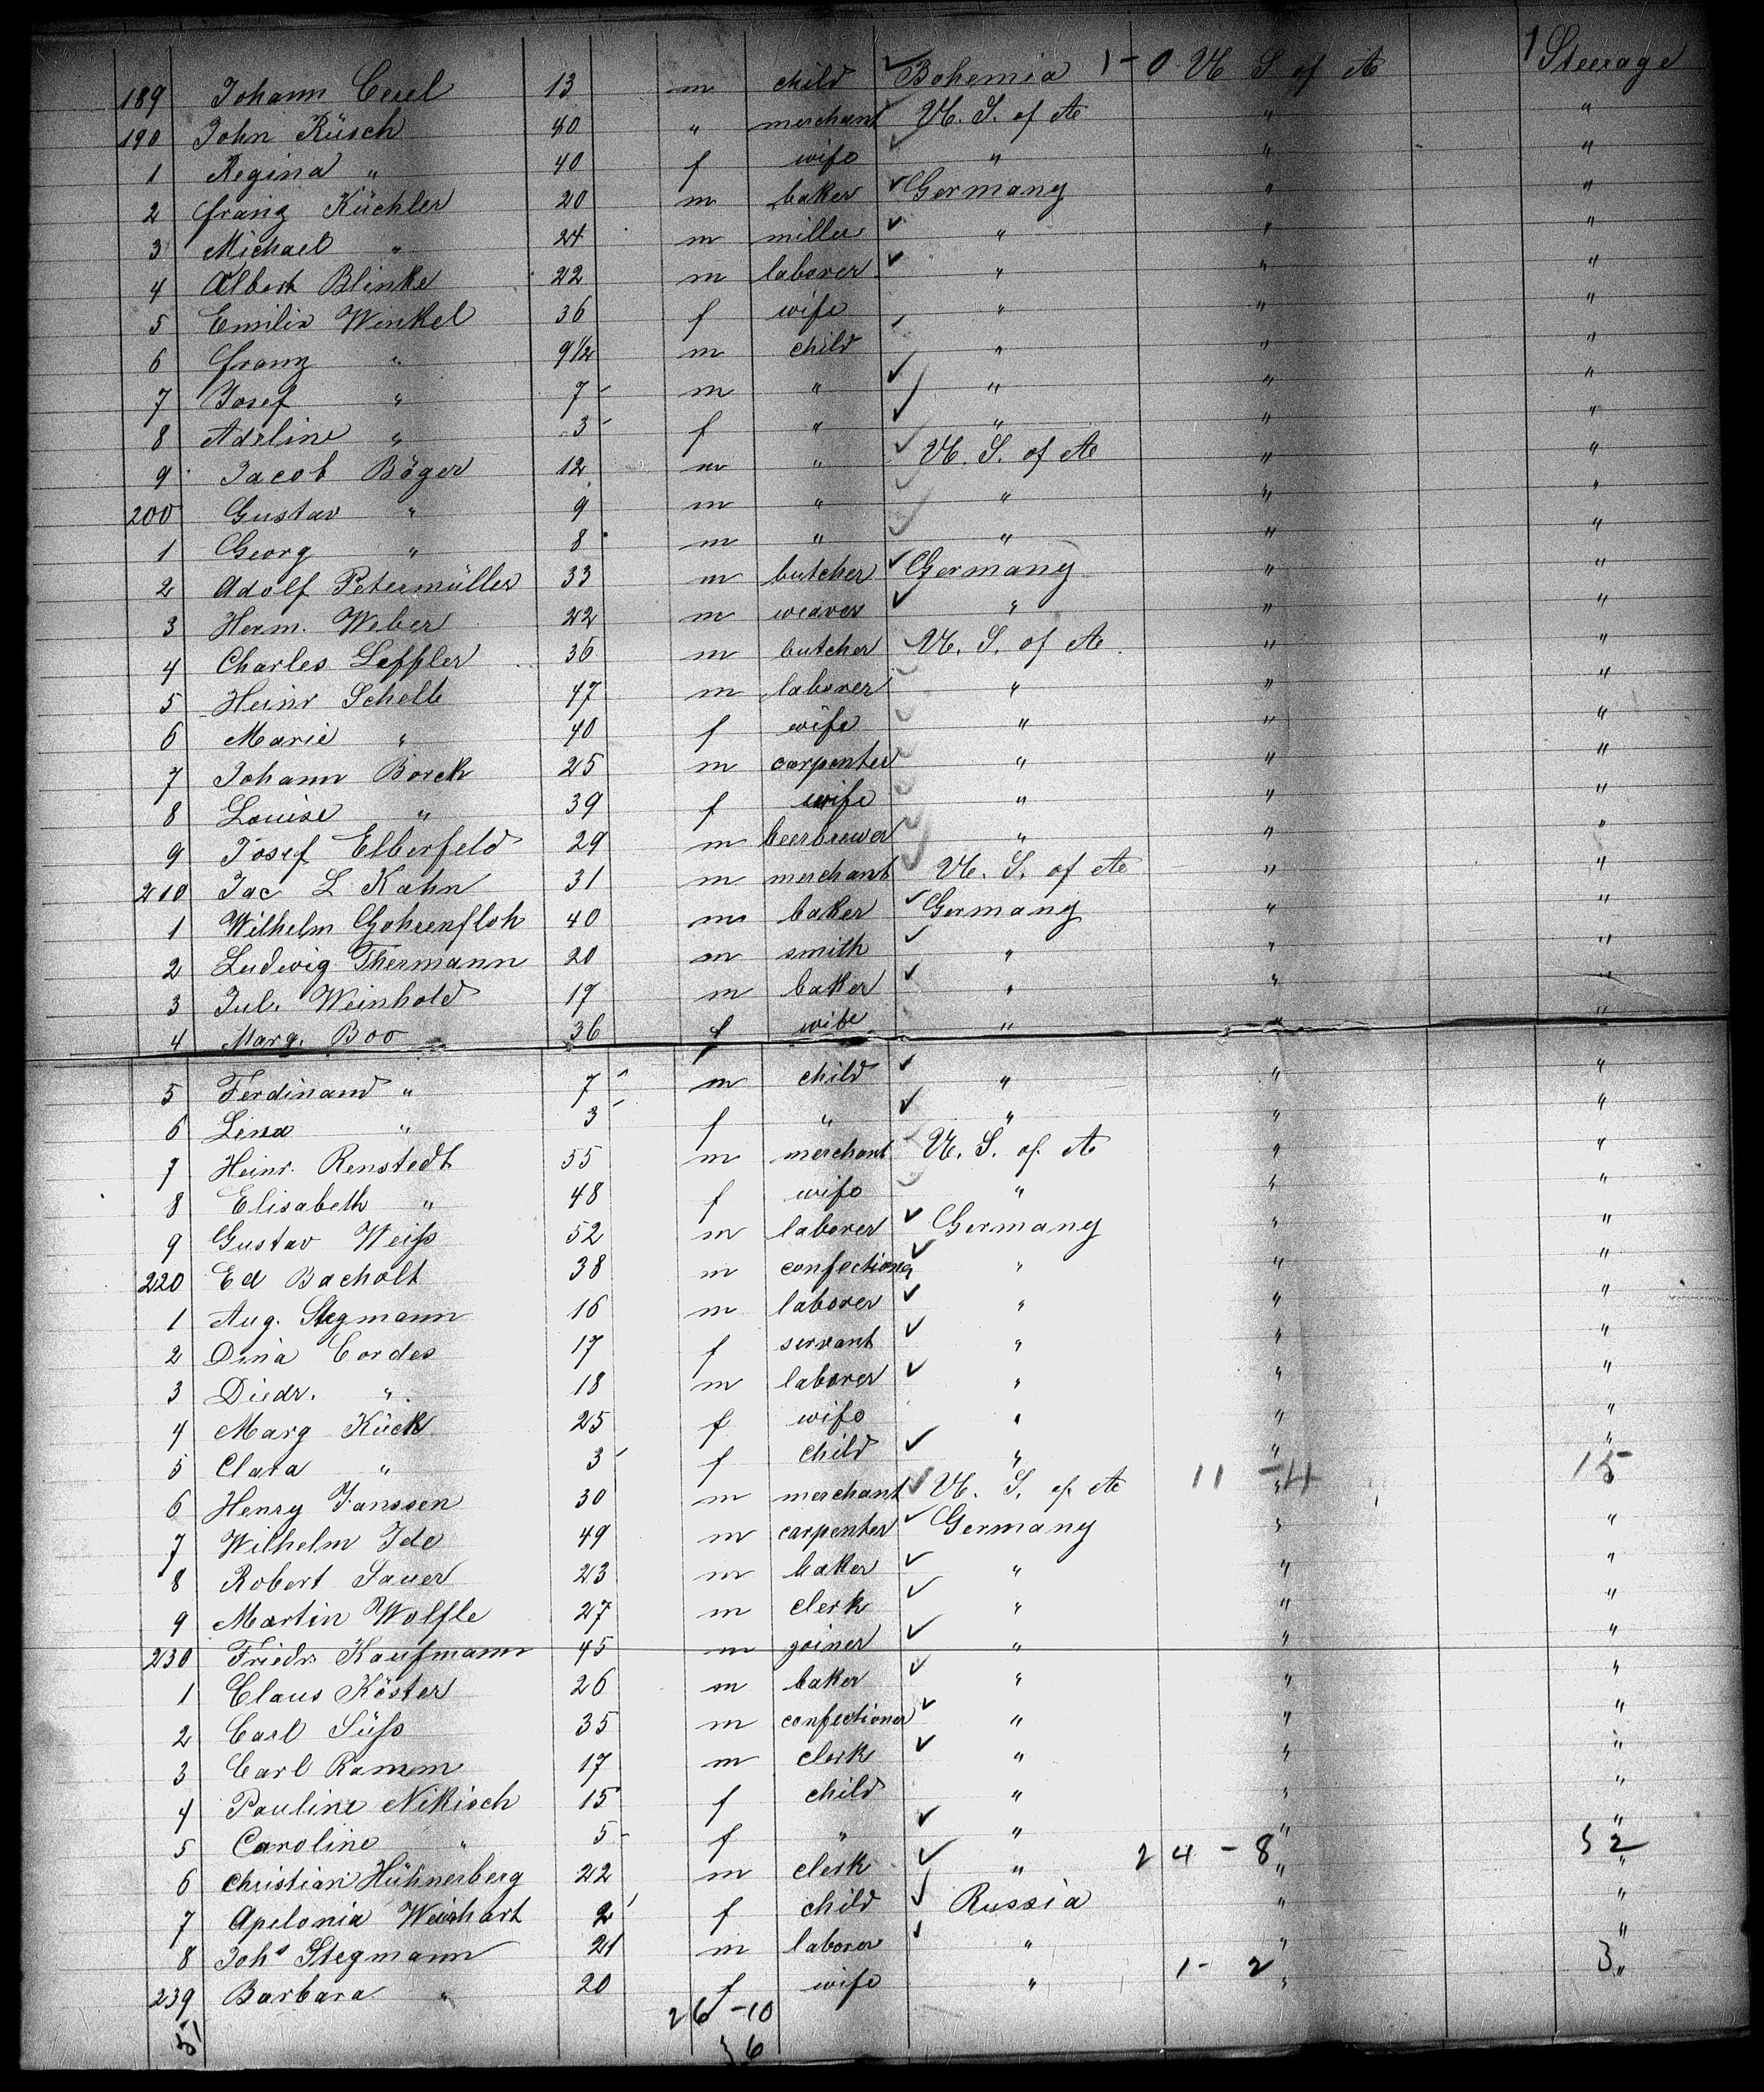 189 Johann Cesel 13 m child ✓ Bohemia 1-0 U S of A 1 Steerage
190 John Rüsch 40 " merchant ✓ U. S. of A " "
1 Regina " 40 f wife ✓ " " "
2 Franz Küchler 20 m baker ✓ Germany " "
3 Michael " 24 m miller ✓ " " "
4 Albert Blinke 22 m laborer ✓ " " "
5 Emilie Wenkel 36 f wife " " "
6 Franz " 9 1/2 m child ✓ " " "
7 Josef " 7 m " ✓ " " "
8 Adeline " 3 f " ✓ " " "
9 Jacob Böger 12 m " ✓ U. S. of A " "
200 Gustav " 9 m " ✓ " " "
1 Georg " 8 m " ✓ " " "
2 Adolf Petermüller 33 m butcher ✓ Germany " "
3 Herm. Weber 22 m weaver ✓ " " "
4 Charles Leffler 36 m butcher ✓ U. S. of A " "
5 Heinr Schelb 47 m laborer ✓ " " "
6 Marie " 40 f wife ✓ " " "
7 Johann Borck 25 m carpenter ✓ " " "
8 Louise " 39 f wife ✓ " " "
9 Josef Elberfeld 29 m beerbrewer ✓ " " "
210 Jac L Kahn 31 m merchant ✓ U. S. of A " "
1 Wilhelm Gohrenfloh 40 m baker ✓ Germany " "
2 Ludwig Thermann 20 m smith ✓ " " "
3 Jul. Weinhold 17 m baker ✓ " " "
4 Marg. Boo 36 f wife " " "
5 Ferdinand " 7 m child ✓ " " "
6 Lina " 3 f " ✓ " " "
7 Heinr. Renstedt 55 m merchant ✓ U. S. of A " "
8 Elisabeth " 48 f wife ✓ " " "
9 Gustav Weiss 52 m laborer ✓ Germany " "
220 Ed Bacholt 38 m confectioner ✓ " " "
1 Aug. Stegmann 16 m laborer ✓ " " "
2 Dina Cordes 17 f servant ✓ " " "
3 Diedr. " 18 m laborer ✓ " " "
4 Marg Kück 25 f wife " " "
5 Clara " 3 f child ✓ " " "
6 Henry Janssen 30 m merchant ✓ U. S. of A 11 - 4 " 15
7 Wilhelm Ide 49 m carpenter ✓ Germany " "
8 Robert Sauer 23 m baker ✓ " " "
9 Martin Wolfle 27 m clerk ✓ " " "
230 Friedr. Kaufmann 45 m joiner ✓ " " "
1 Claus Köster 26 m baker ✓ " " "
2 Carl Süss 35 m confectioner ✓ " " "
3 Carl Ramm 17 m clerk ✓ " " "
4 Pauline Nikisch 15 f child " " "
5 Caroline " 5 f " ✓ " " "
6 Christian Hühnerberg 22 m clerk ✓ " 24 - 8 " 32 "
7 Apelonia Weishart 2 f child ✓ Russia " "
8 Johs Stegmann 21 m laborer ✓ " " "
239 Barbara " 20 f wife " 1 - 2 " 3 "
51 26 - 10
36